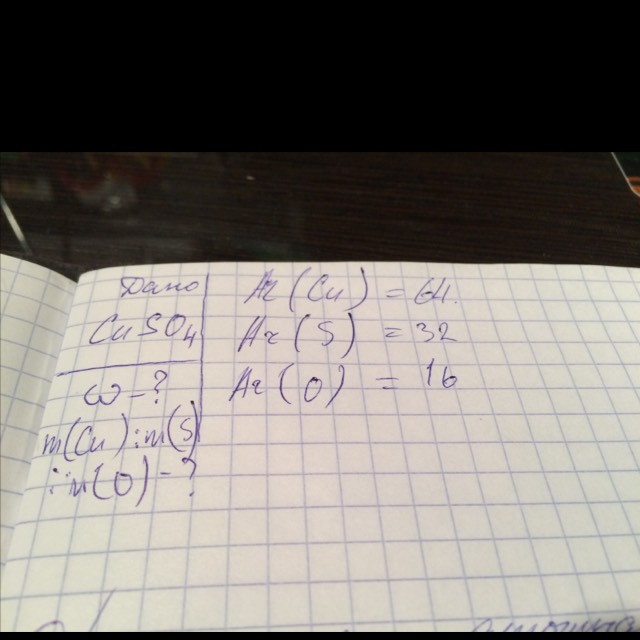 Дано
CuSO4
ω - ?
m(Cu) : m(S)
: m(O) - ?
Ar(Cu) = 64.
Ar(S) = 32
Ar(O) = 16